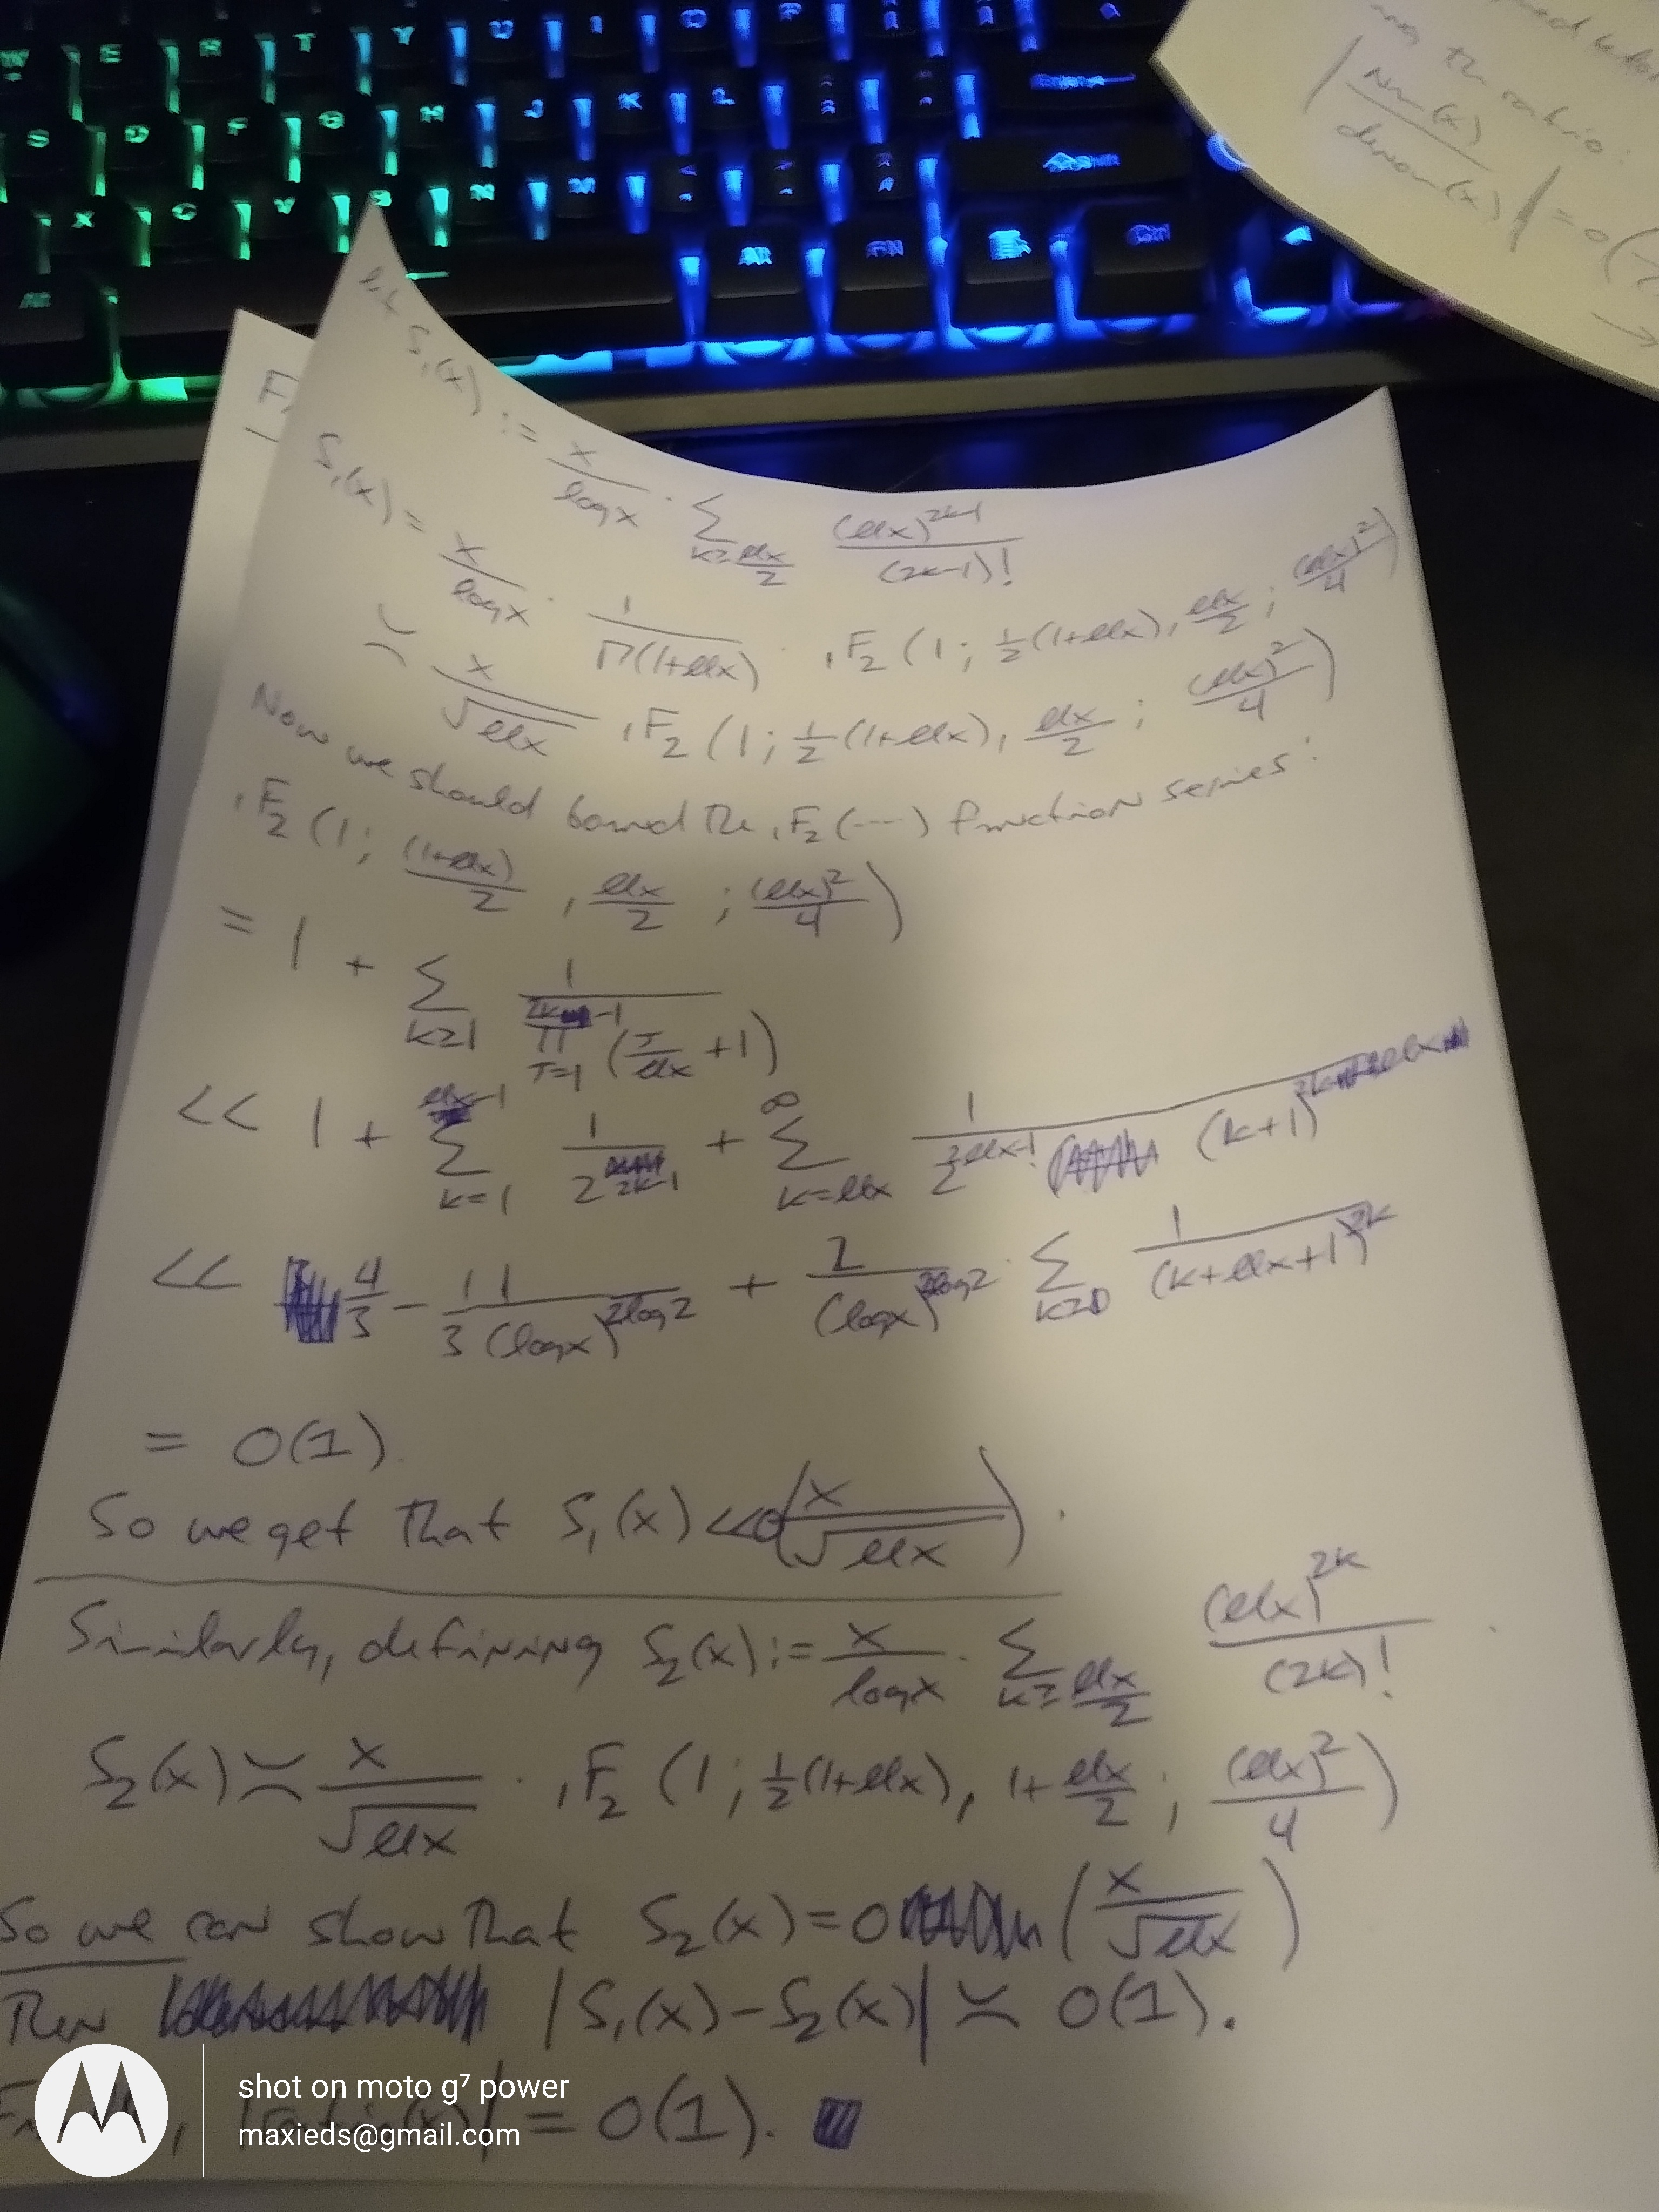 W E R T Y U I O P
S D F G H J K L
X C V B N M Shift
Alt Alt FN Ctrl
the ratio:
| Num(x) / denom(x) | = o(
→
let S₁(x) := x/log x · Σ_{k≥ℓℓx/2} (ℓℓx)^{2k-1}/(2k-1)!
S₁(x) = x/log x · 1/Γ(1+ℓℓx) · ₁F₂(1; ½(1+ℓℓx), ℓℓx/2; (ℓℓx)²/4)
≍ x/√ℓℓx ₁F₂(1; ½(1+ℓℓx), ℓℓx/2; (ℓℓx)²/4)
Now we should bound the ₁F₂(---) function series:
₁F₂(1; (1+ℓℓx)/2, ℓℓx/2; (ℓℓx)²/4)
= 1 + Σ_{k≥1} 1/∏_{J=1}^{2k-1} (J/ℓℓx + 1)
<< 1 + Σ_{k=1}^{ℓℓx-1} 1/2^{2k-1} + Σ_{k=ℓℓx}^{∞} 1/2^{2ℓℓx-1} (k+1)^{2k}
<< 4/3 - 1/3 1/(log x)^{2log2} + 2/(log x)^{2log2} · Σ_{k≥0} 1/(k+ℓℓx+1)^{2k}
= O(1).
So we get that S₁(x) << O(x/√ℓℓx).
Similarly, defining S₂(x) := x/log x · Σ_{k≥ℓℓx/2} (ℓℓx)^{2k}/(2k)! .
S₂(x) ≍ x/√ℓℓx · ₁F₂(1; ½(1+ℓℓx), 1+ℓℓx/2; (ℓℓx)²/4)
So we can show that S₂(x) = O(x/√ℓℓx)
Then |S₁(x) - S₂(x)| ≍ O(1).
= O(1).
shot on moto g⁷ power
maxieds@gmail.com